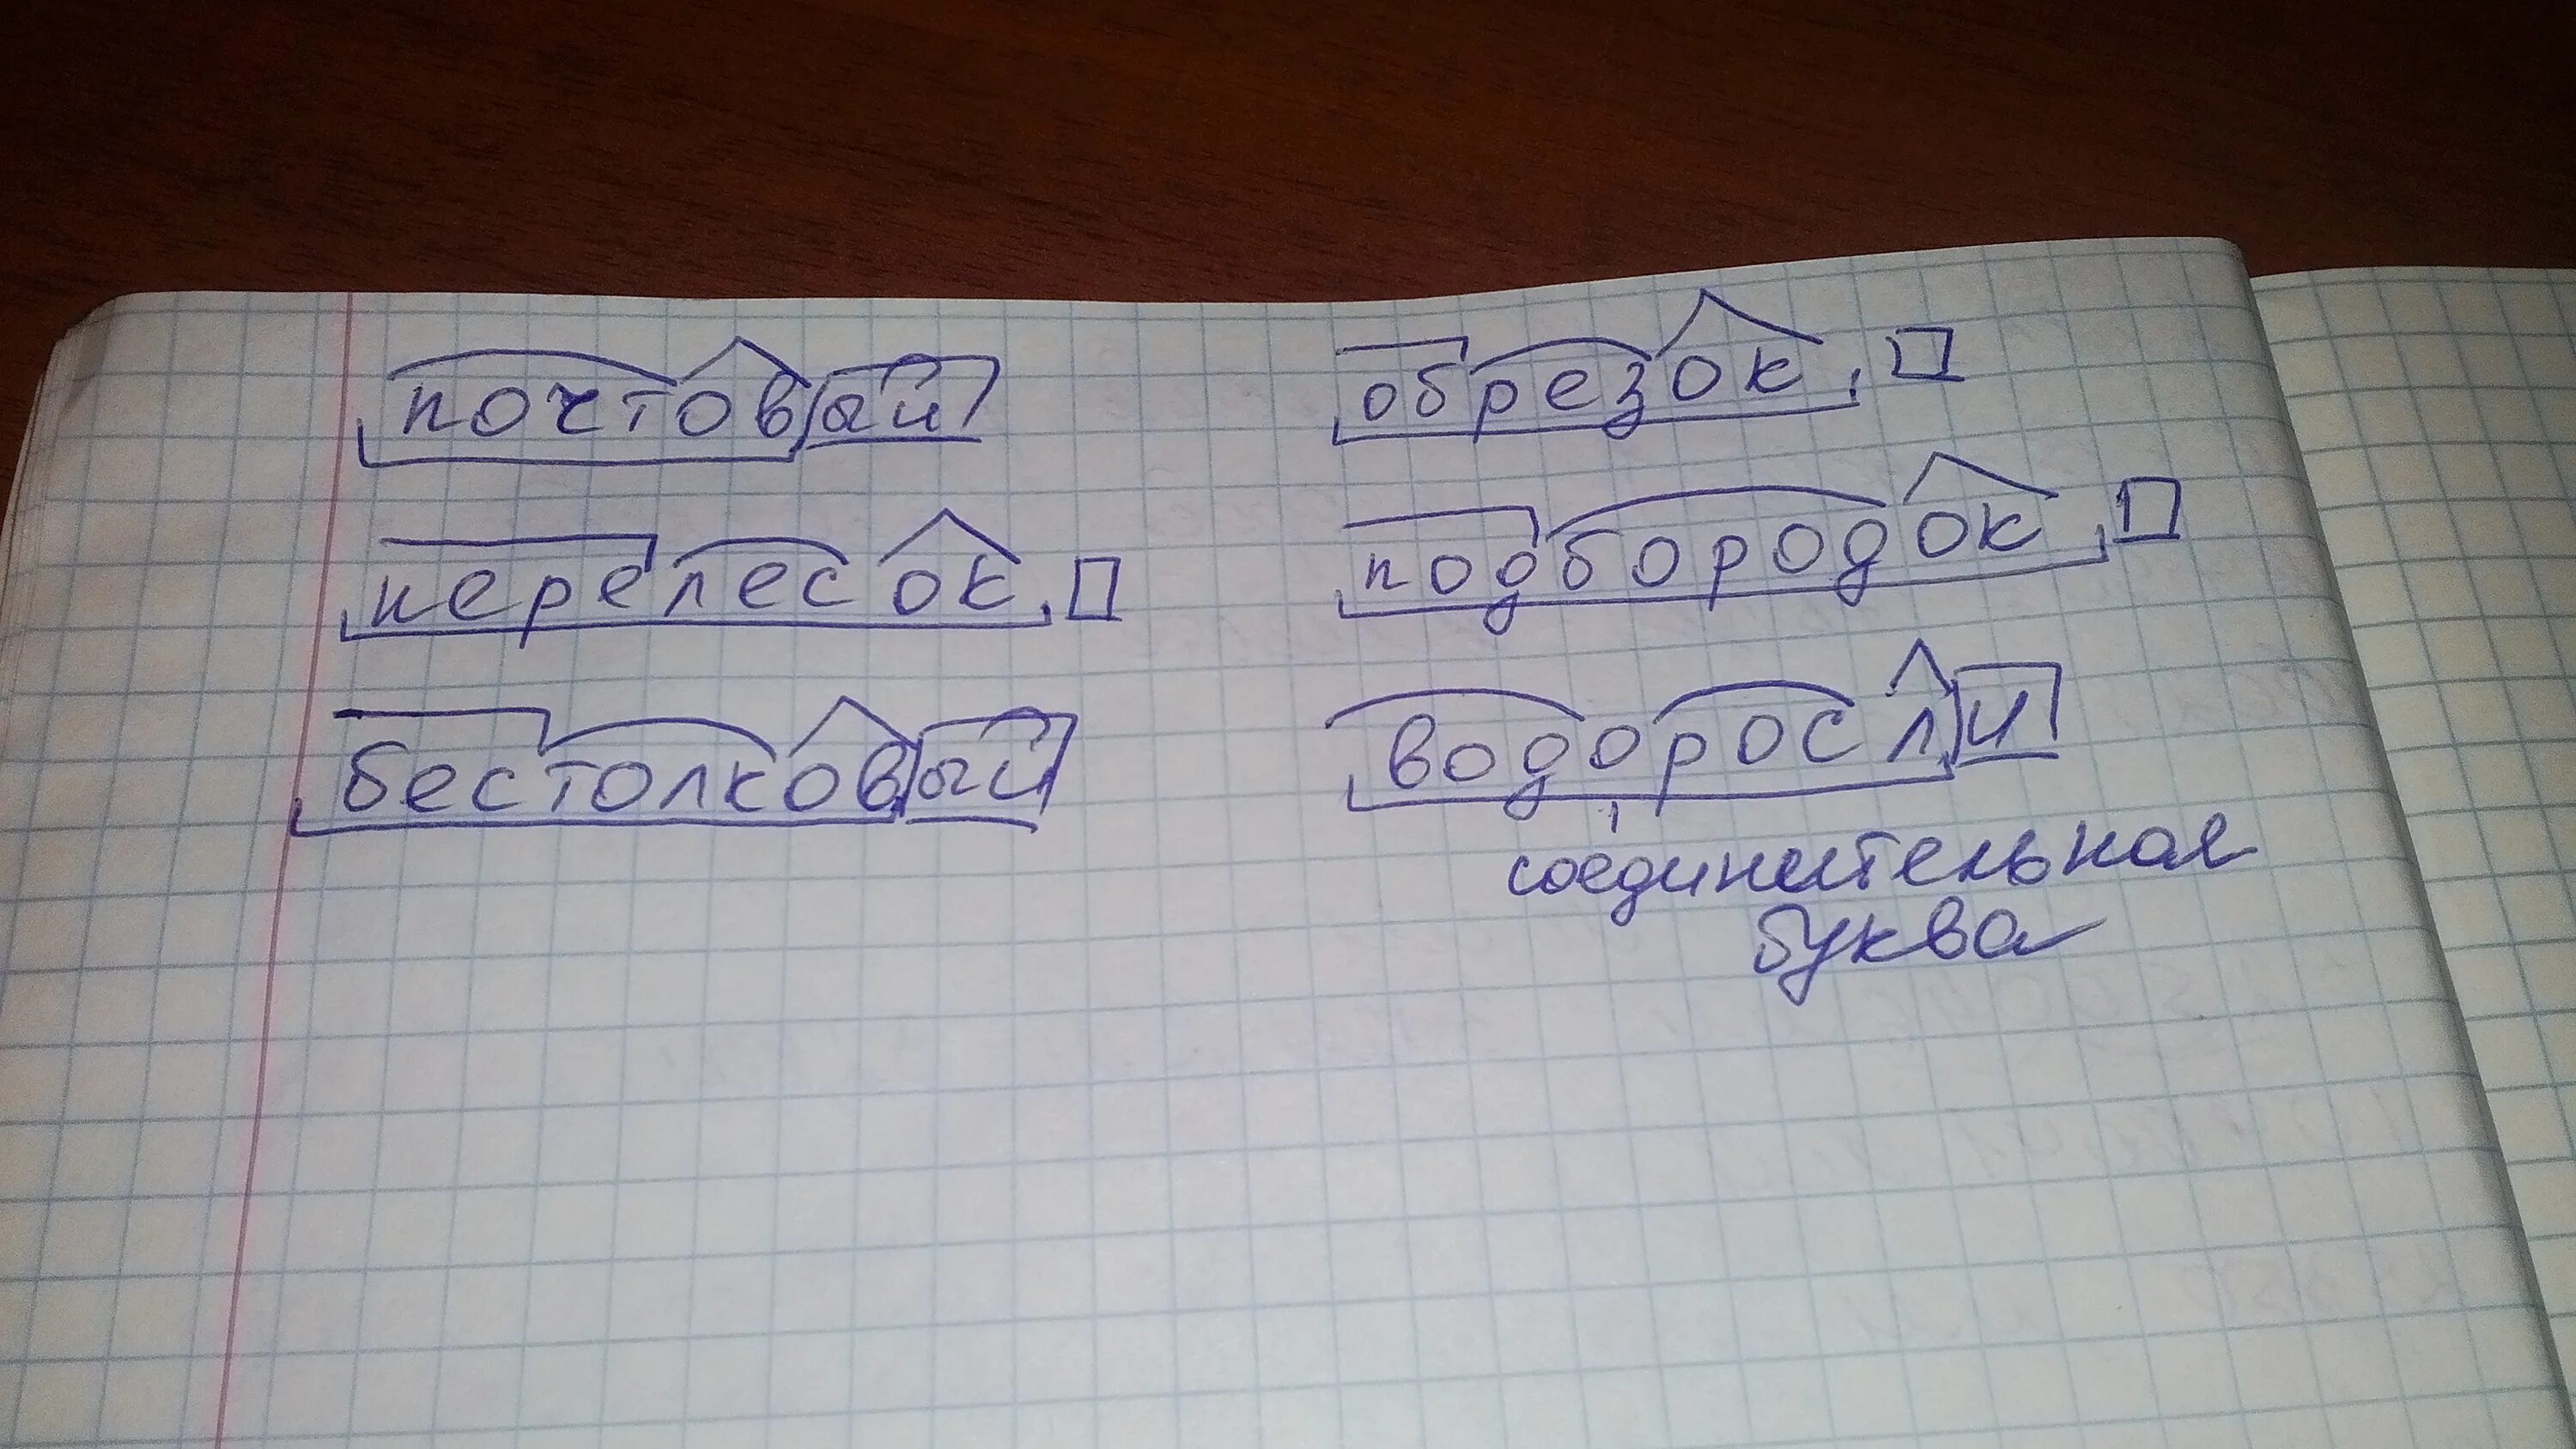 почтовый
перелесок
бестолковый
обрезок
подбородок
водоросли
соединительная
буква